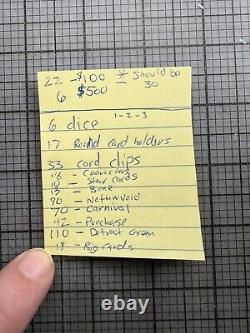 22 - $100 * should be
6 $500 - 30
1-2-3
6 dice
17 Round card holders
33 card clips
18 - Characters
18 - Star Cards
13 - Bane
90 - Nethervoid
70 - Carnival
42 - Purchase
110 - Detroit Green
18 - Big Cards